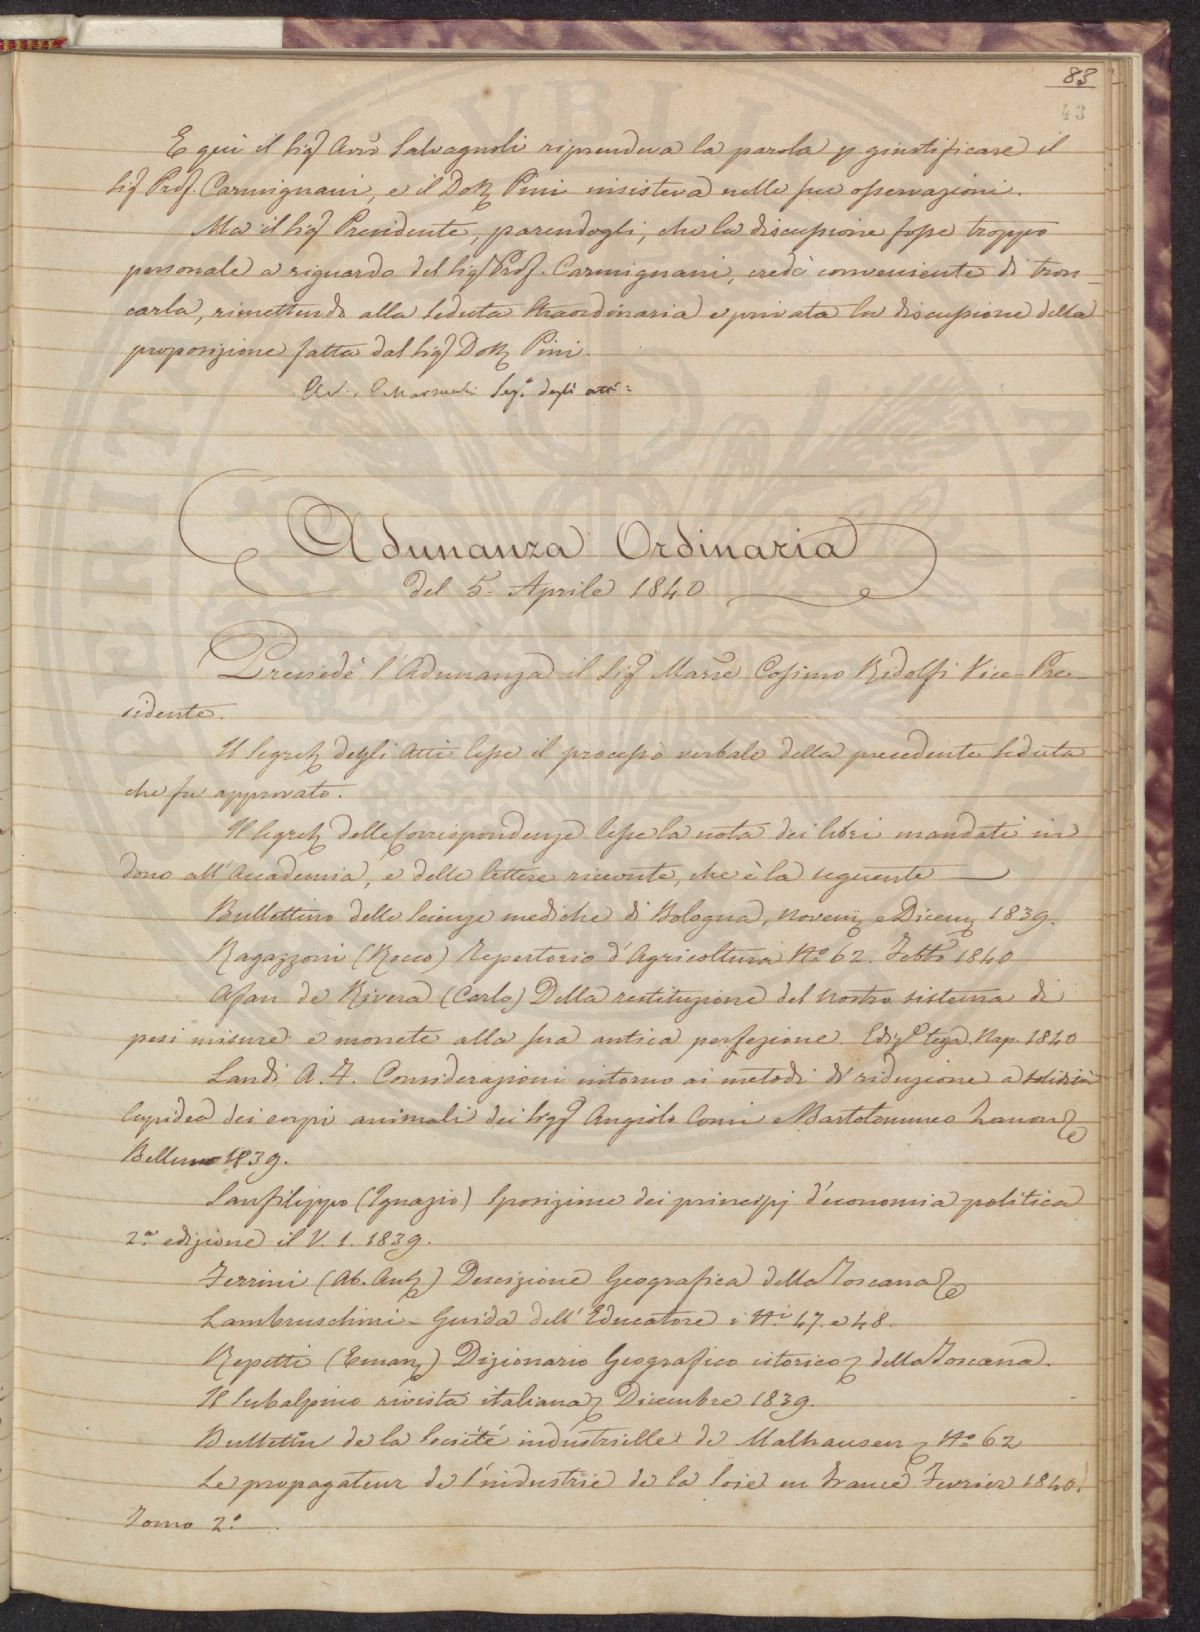 83
43
E quì il Sig.r Avv.o Salvagnoli riprendeva la parola p giustificare il
Sig.r Prof. Carmignani, e il Dott. Pini insisteva nelle sue osservazioni.
Ma il Sig.r Presidente, parendogli, che la discussione fosse troppo
personale a riguardo del Sig.r Prof. Carmignani, credè conveniente di tron-
carla, rimettendo alla seduta straordinaria e privata la discussione della
proposizione fatta dal Sig.r Dott. Pini.
Av. C. Marzucchi Seg.o degli atti=
Adunanza Ordinaria
del 5. Aprile 1840
Presiedè l'Adunanza il Sig.r Marse Cosimo Ridolfi Vice-Pre-
sidente.
Il Segret. degli Atti lesse il processo verbale della precedente seduta
che fu approvato.
Il Segret. delle Corrispondenze lesse la nota dei libri mandati in
dono all'Accademia, e delle lettere ricevute, che è la seguente —
Bullettino delle Scienze mediche di Bologna, Novem. e Dicem. 1839.
Ragazzoni (Rocco) Repertorio d'Agricoltura No 62. Febbo 1840
Afan de Rivera (Carlo) Della restituzione del nostro sistema di
pesi misure e monete alla sua antica perfezione. Ediz.e 2a Nap. 1840
Landi A. F. Considerazioni intorno ai metodi di riduzione a solidità
lapidea dei corpi animali dei Sigg.ri Angiolo Comi e Bartolommeo Zanon
Belluno 1839.
Sanfilippo (Ignazio) Sposizione dei principj d'economia politica
2a edizione il V. 1. 1839.
Ferrini (Ab. Ant.) Descizione Geografica della Toscana
Lambruschini - Guida dell'Educatore i Ni 47. e 48.
Repetti (Eman.) Dizionario Geografico istorico della Toscana.
Il Subalpino rivista italiana Dicembre 1839.
Bulletin de la Société industrielle de Malhausen No 62
Le propagateur de l'industrie de la Soie en France Fevrier 1840.
Tomo 2o.